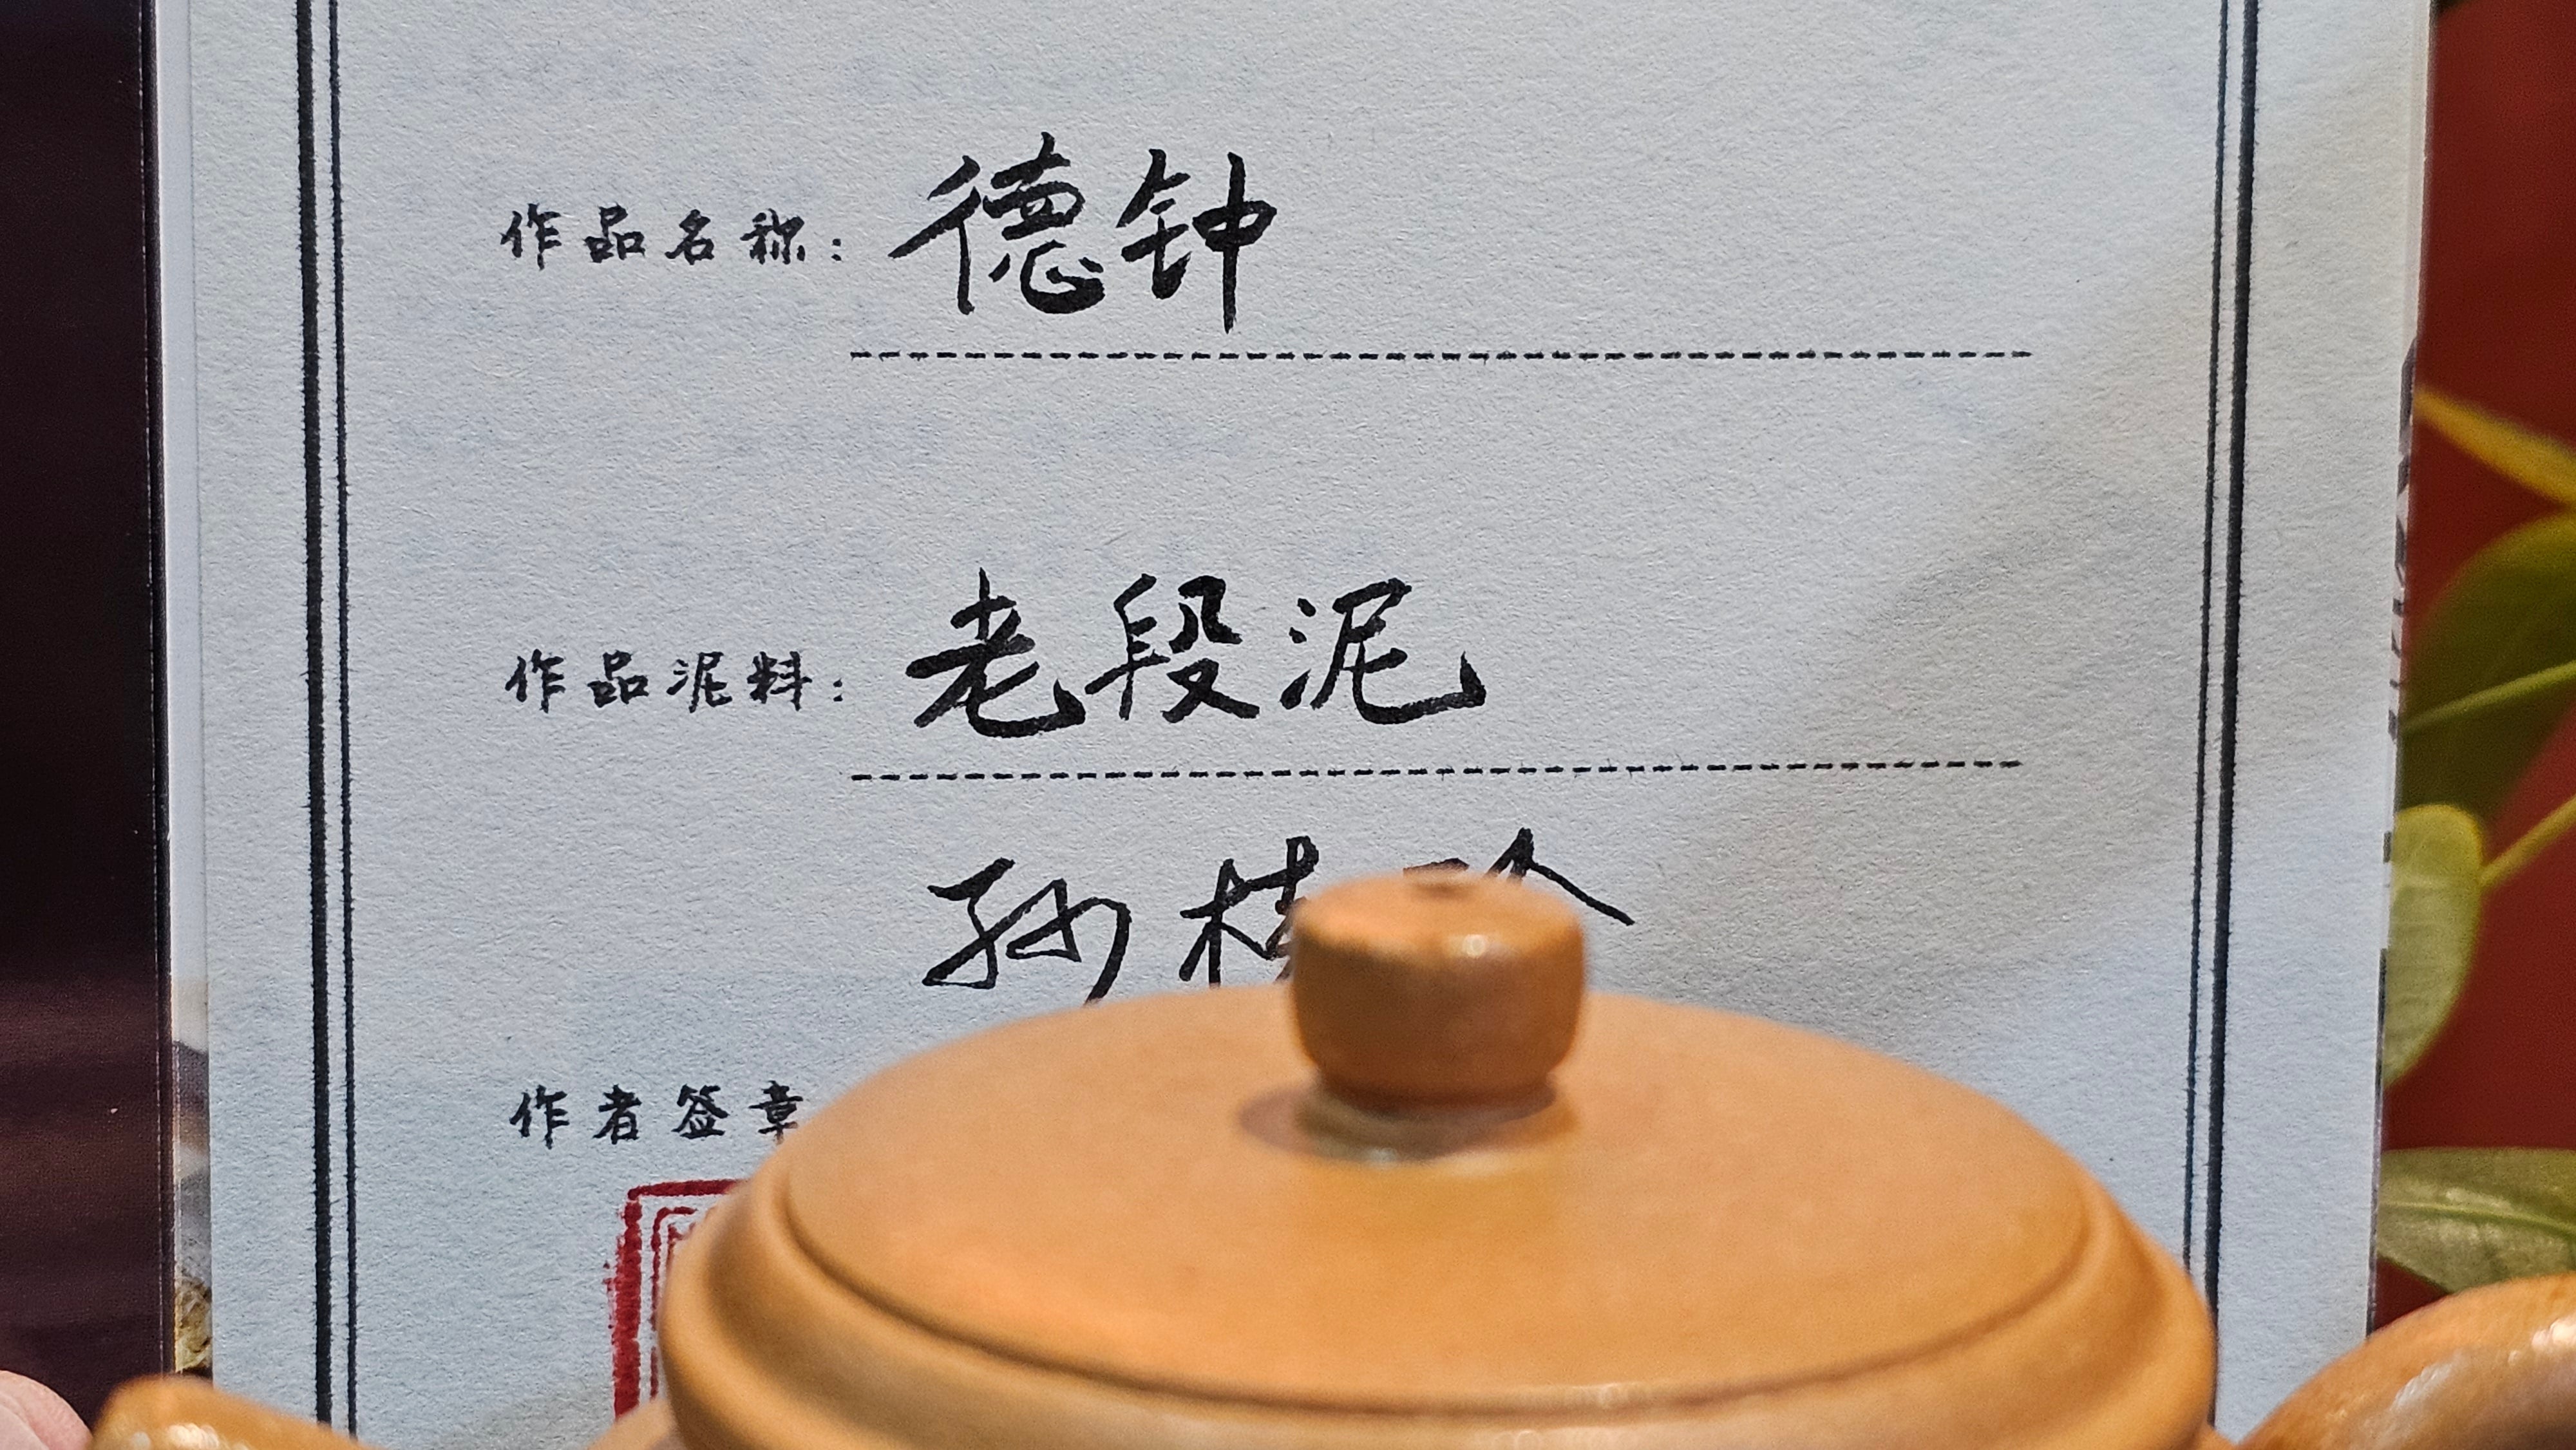 作品名称：德钟
作品泥料：老段泥
孙
作者签章